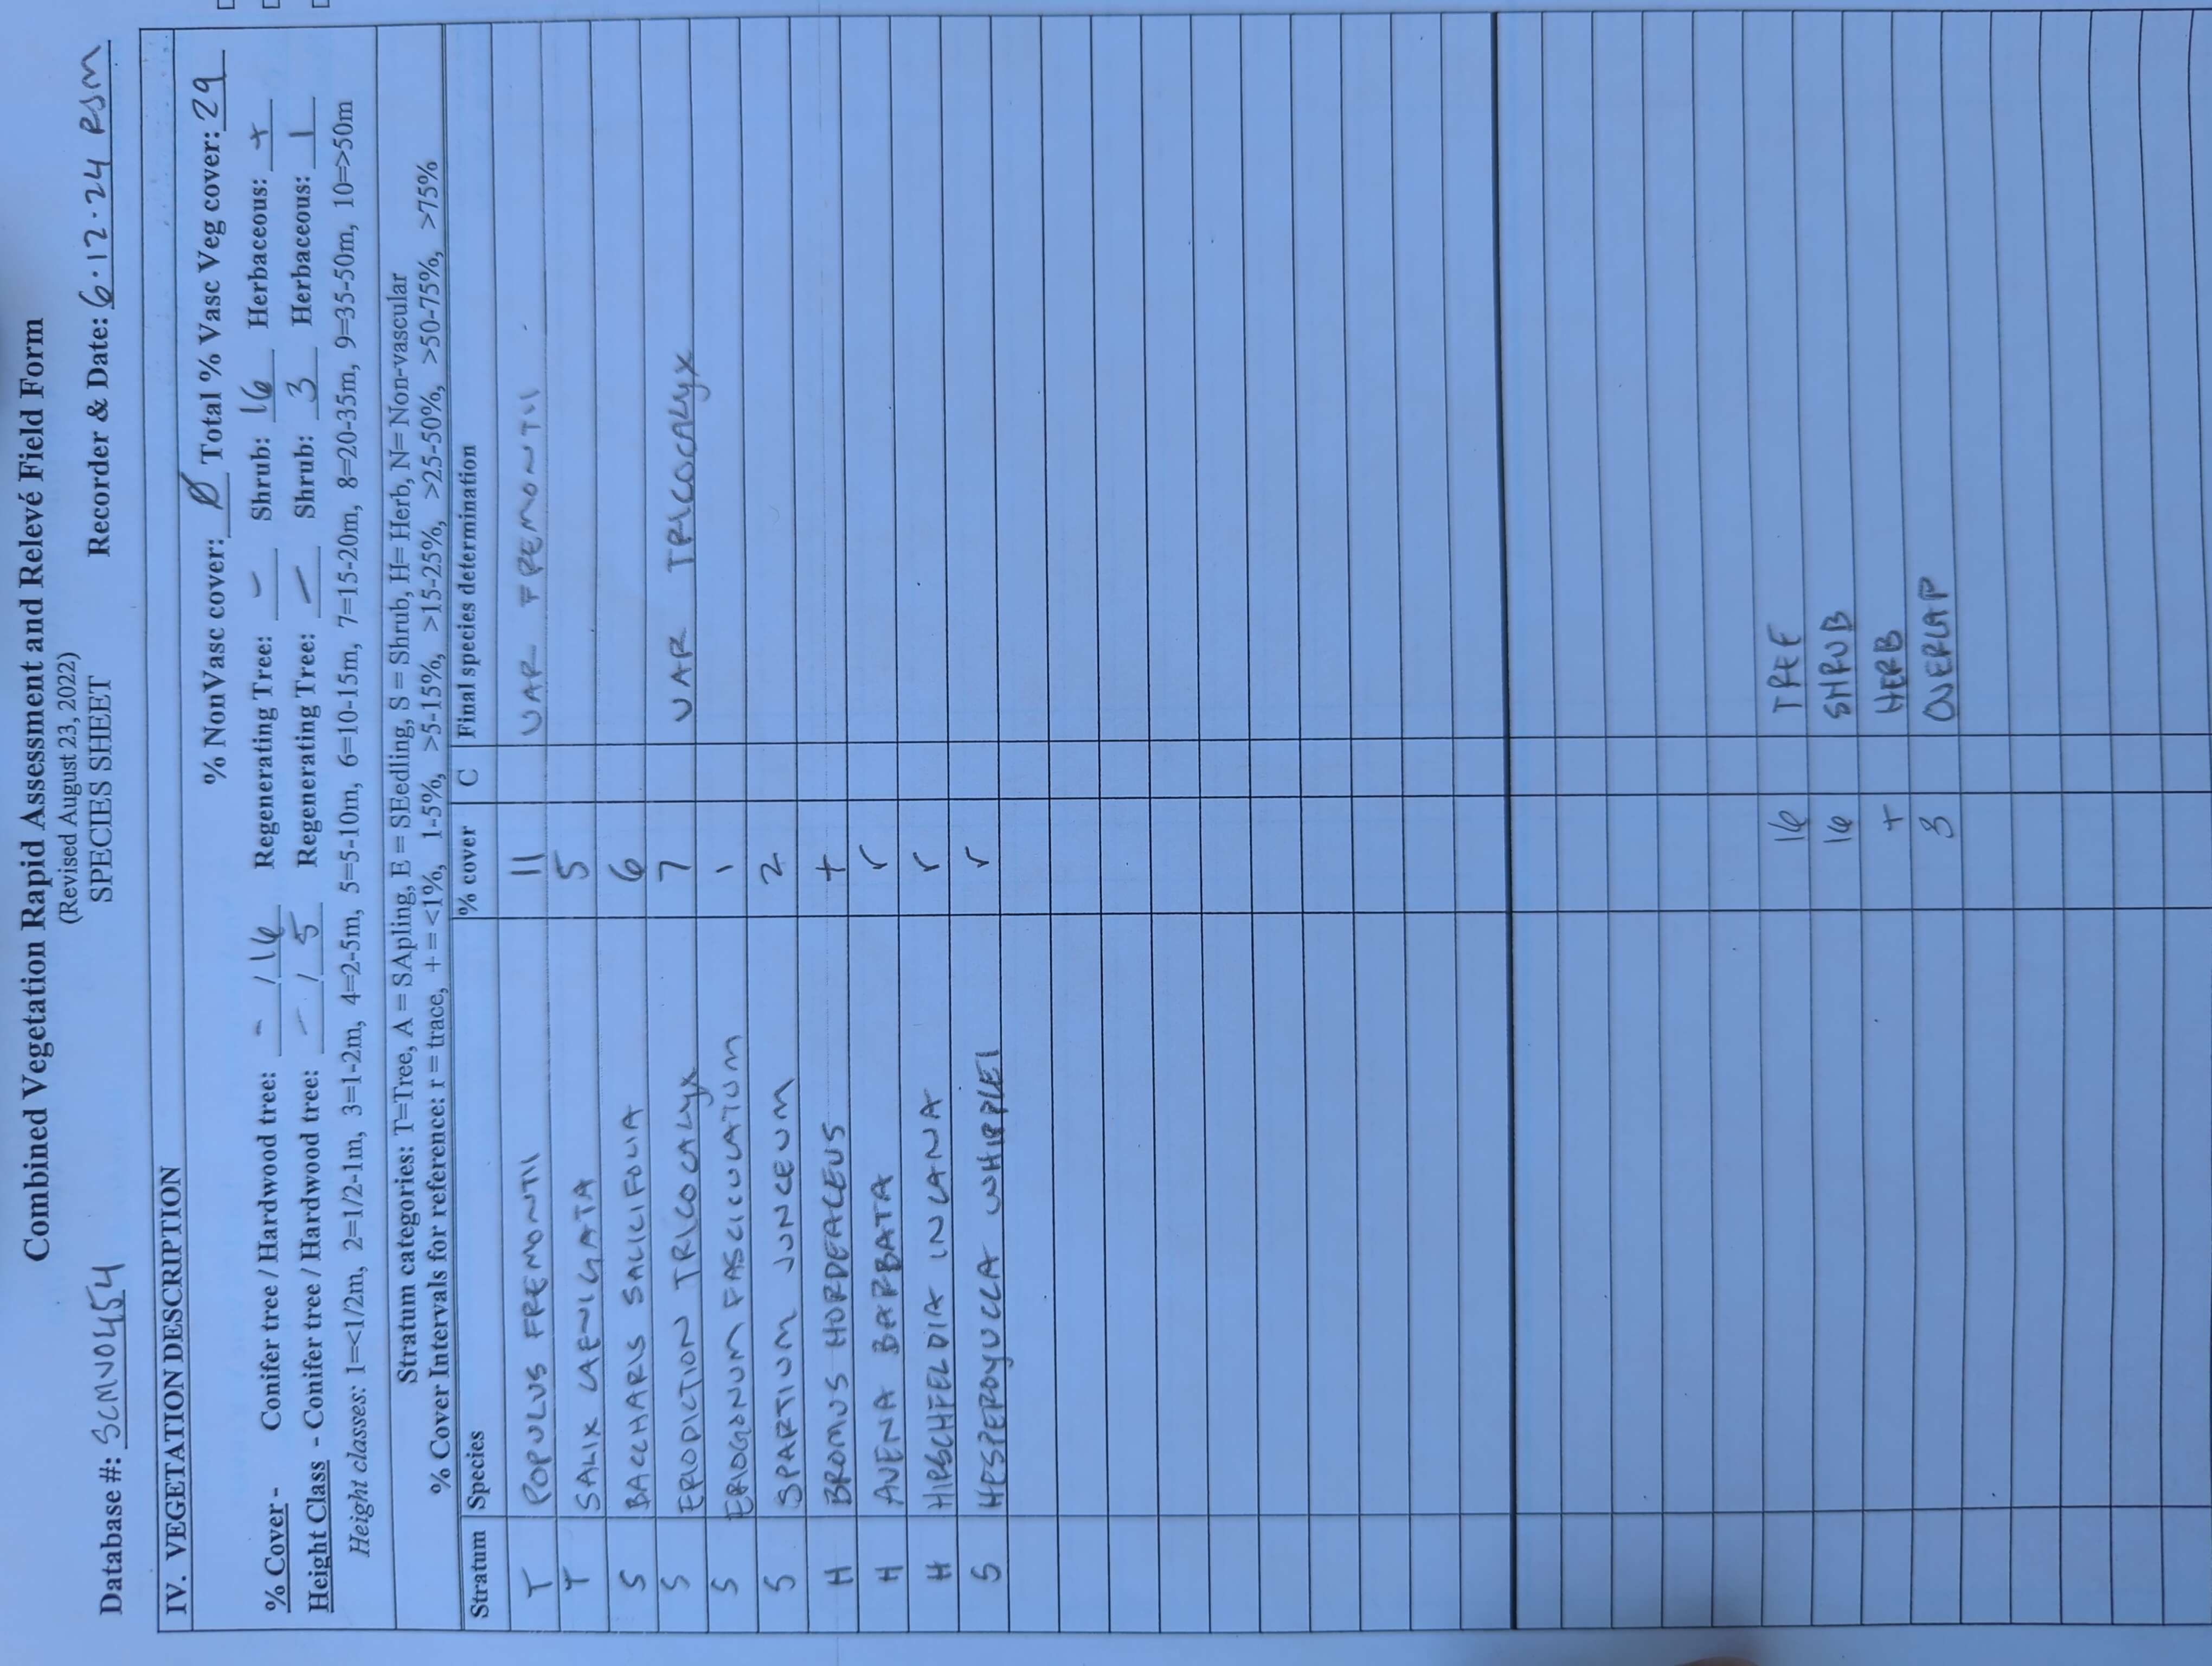 Combined Vegetation Rapid Assessment and Relevé Field Form
(Revised August 23, 2022)
SPECIES SHEET
Database #: SCMV0454 Recorder & Date: 6·12·24 RSM
IV. VEGETATION DESCRIPTION
% NonVasc cover: Ø Total % Vasc Veg cover: 29
% Cover - Conifer tree / Hardwood tree: - / 16 Regenerating Tree: - Shrub: 16 Herbaceous: +
Height Class - Conifer tree / Hardwood tree: - / 5 Regenerating Tree: - Shrub: 3 Herbaceous: 1
Height classes: 1=<1/2m, 2=1/2-1m, 3=1-2m, 4=2-5m, 5=5-10m, 6=10-15m, 7=15-20m, 8=20-35m, 9=35-50m, 10=>50m
Stratum categories: T=Tree, A = SApling, E = SEedling, S = Shrub, H= Herb, N= Non-vascular
% Cover Intervals for reference: r = trace, + = <1%, 1-5%, >5-15%, >15-25%, >25-50%, >50-75%, >75%
Stratum Species % cover C Final species determination
T POPULUS FREMONTII 11 VAR FREMONTII
T SALIX LAEVIGATA 5
S BACCHARIS SALICIFOLIA 6
S ERIODICTION TRICOCALYX 7 VAR TRICOCALYX
S ERIOGONUM FASCICULATUM 1
S SPARTIUM JUNCEUM 2
H BROMUS HORDEACEUS +
H AVENA BARBATA r
H HIRSCHFELDIA INCANA r
S HESPEROYUCCA WHIPPLEI r
16 TREE
16 SHRUB
+ HERB
3 OVERLAP